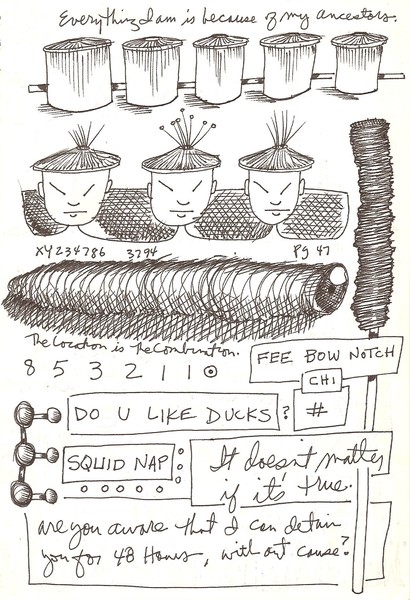 Everything I am is because of my ancestors.
XY234786 3794 Pg 47
The Location is The Combination.
8 5 3 2 1 1 0
FEE BOW NOTCH
CHI
DO U LIKE DUCKS? #
SQUID NAP
It doesn't matter
if it's true.
are you aware that I can detain
you for 48 Hours, without cause?